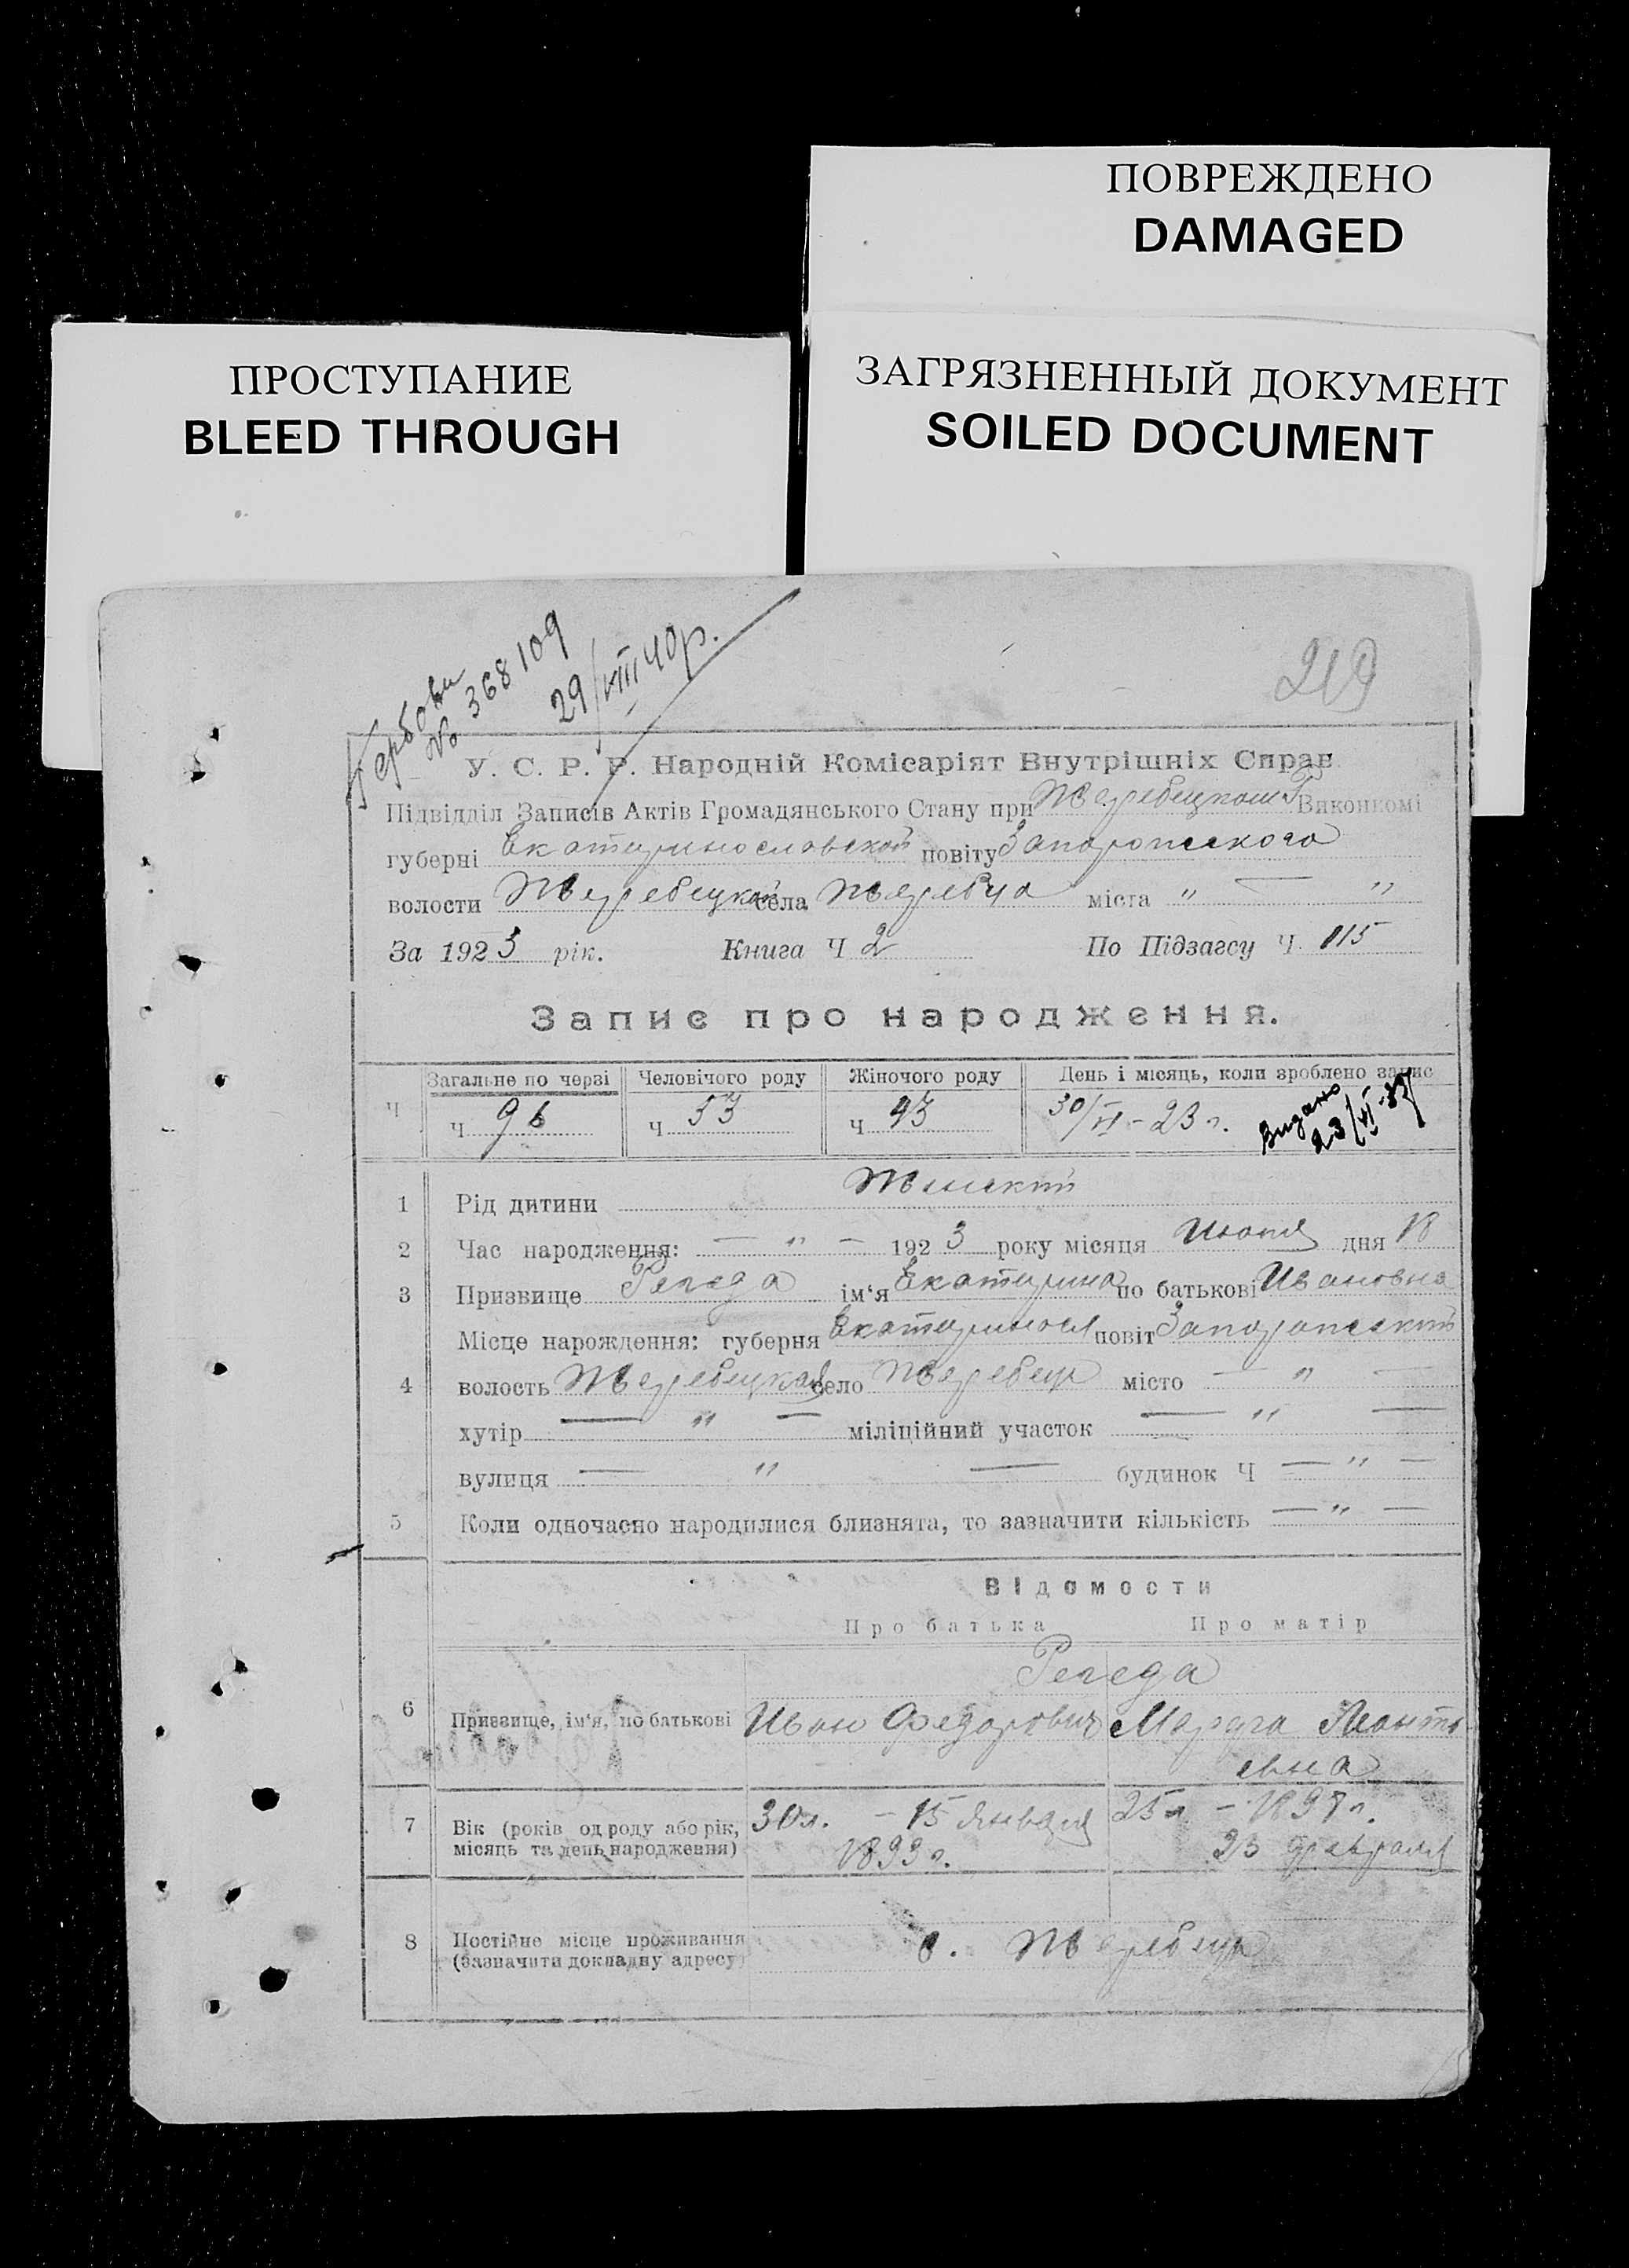 ПОВРЕЖДЕНО
DAMAGED
ПРОСТУПАНИЕ
BLEED THROUGH
ЗАГРЯЗНЕННЫЙ ДОКУМЕНТ
SOILED DOCUMENT
Гербови
№ 368109
29/VIII 40р.
У. С. Р. Р. Народній Комісаріят Внутрішніх Справ
Підвідділ Записів Актів Громадянського Стану при Жеребецком Виконкомі
губерні Екатеринославской повіту Запорожского
волости Жеребецкой села Жеребца міста " — "
За 1923 рік. Книга Ч 2 По Підзагсу Ч 115
Запис про народження.
Ч Загальне по черзі Человічого роду Жіночого роду День і місяць, коли зроблено запис
Ч 96 Ч 53 Ч 43 30/VI - 23 г. Видано 23/VI-
1 Рід дитини Женский
2 Час народження: — " — 1923 року місяця Июня дня 18
3 Призвище Регеда ім'я Екатерина по батькові Ивановна
Місце нарождення: губерня Екатериносл повіт Запорожский
4 волость Жеребецкая село Жеребец місто — " —
хутір — " — міліційний участок — " —
вулиця — " — будинок Ч — " —
5 Коли одночасно народилися близнята, то зазначити кількість — " —
Відомости
Про батька Про матір
Регеда
6 Призвище, ім'я, по батькові Иван Федорович Марфа Леонть
евна
7 Вік (років од роду або рік, 30 л. - 15 Января 25 л - 1897 г.
місяць та день народження) 1893 г. 23 февраля
8 Постійне місце проживання с. Жеребец
(зазначити докладну адресу)